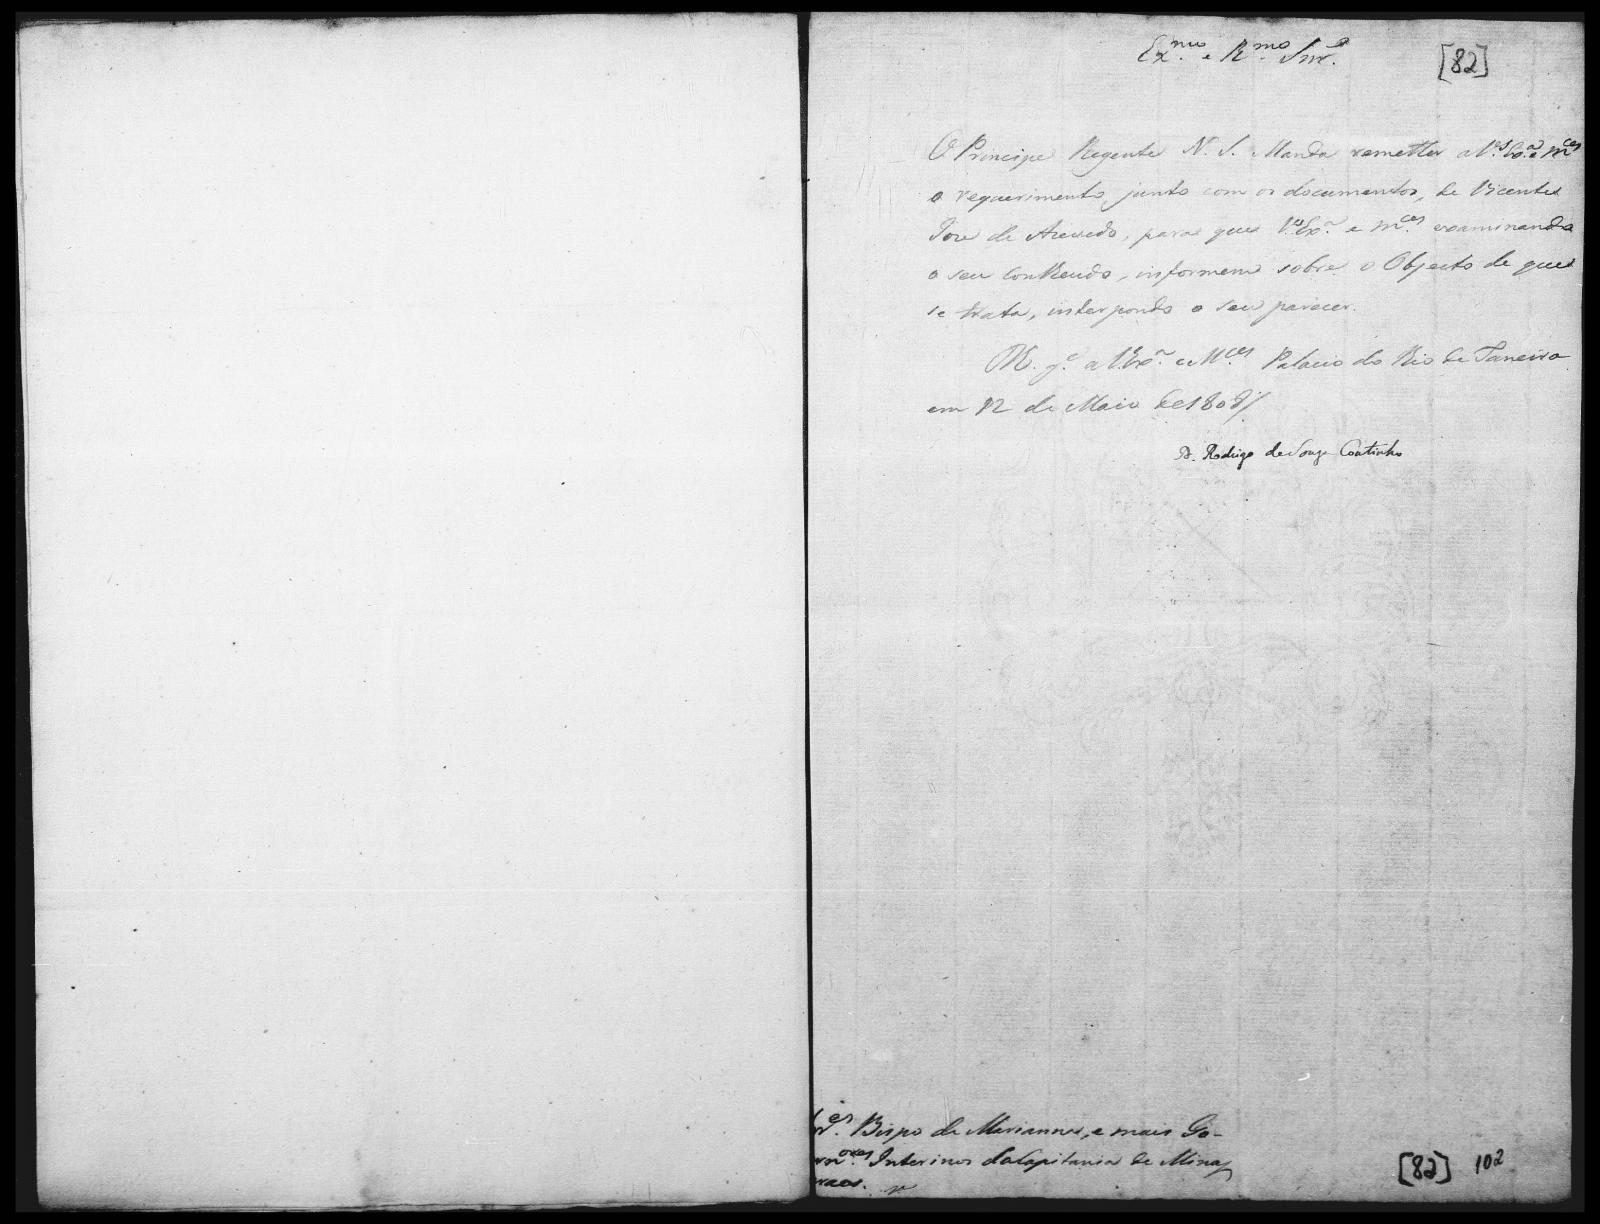 Ex.mo e R.mo Snr.
[82]
O Principe Regente N. S. Manda remetter a V. Ex.a e M.ces
o requerimento junto com os documentos, de Vicente
Joze de Azevedo, para que V. Ex.a e M.ces examinando
o seu contheudo, informem sobre o Objecto de que
se trata, interpondo o seu parecer.
g.e a V. Ex.a e M.ces Palacio do Rio de Janeiro
em 12 de Maio de 1808
D. Rodrigo de Souza Coutinho
Bispo de Marianna, e mais Go-
Interinos da Capitania de Minas
raes.
[82] 102